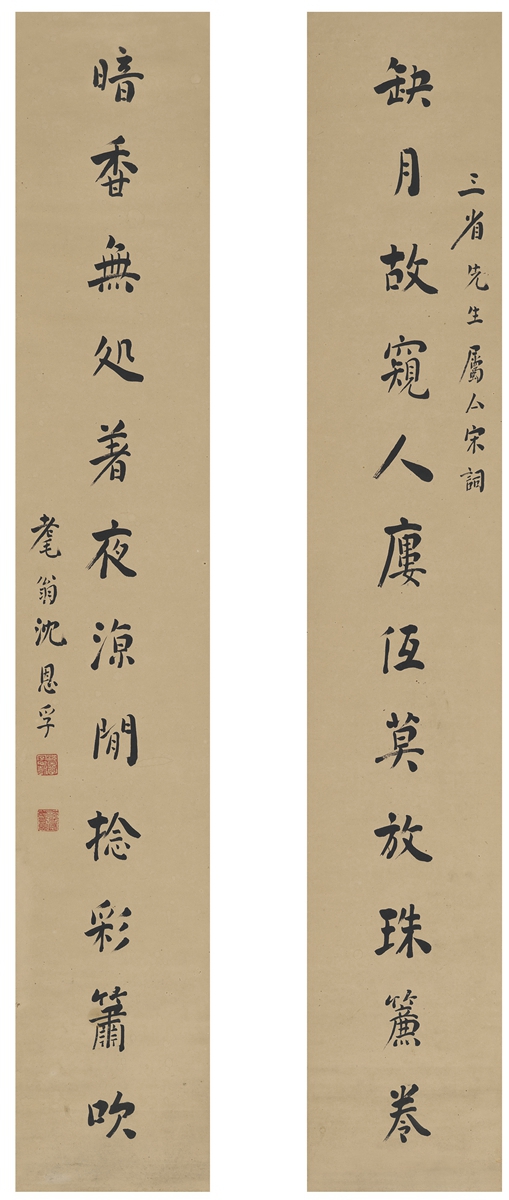 三省先生屬亼宋詞
缺月故窺人廔低莫放珠簾卷
暗香無処著夜涼閒捻彩簫吹
耄翁沈恩孚